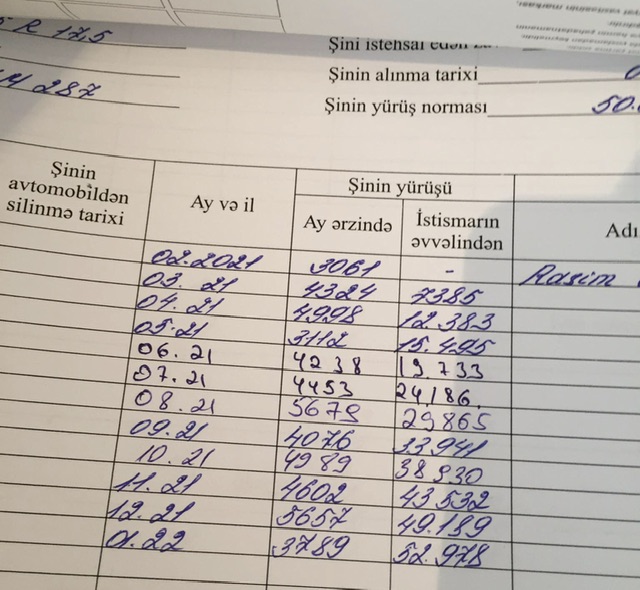 R 17,5
Şini istehsal edən
Şinin alınma tarixi
287
Şinin yürüş norması 50.
Şinin avtomobildən silinmə tarixi
Ay və il
Şinin yürüşü
Ay ərzində
İstismarın əvvəlindən
Adı
02.2021 3061 - Rasim
03. 21 4324 7385
04. 21 4998 12.383
05.21 3112 15.495
06. 21 4238 19.733
07. 21 4453 24,186.
08. 21 5679 29865
09.21 4076 33941
10. 21 4989 38930
11. 21 4602 43532
12. 21 5657 49.189
01.22 3789 52.978